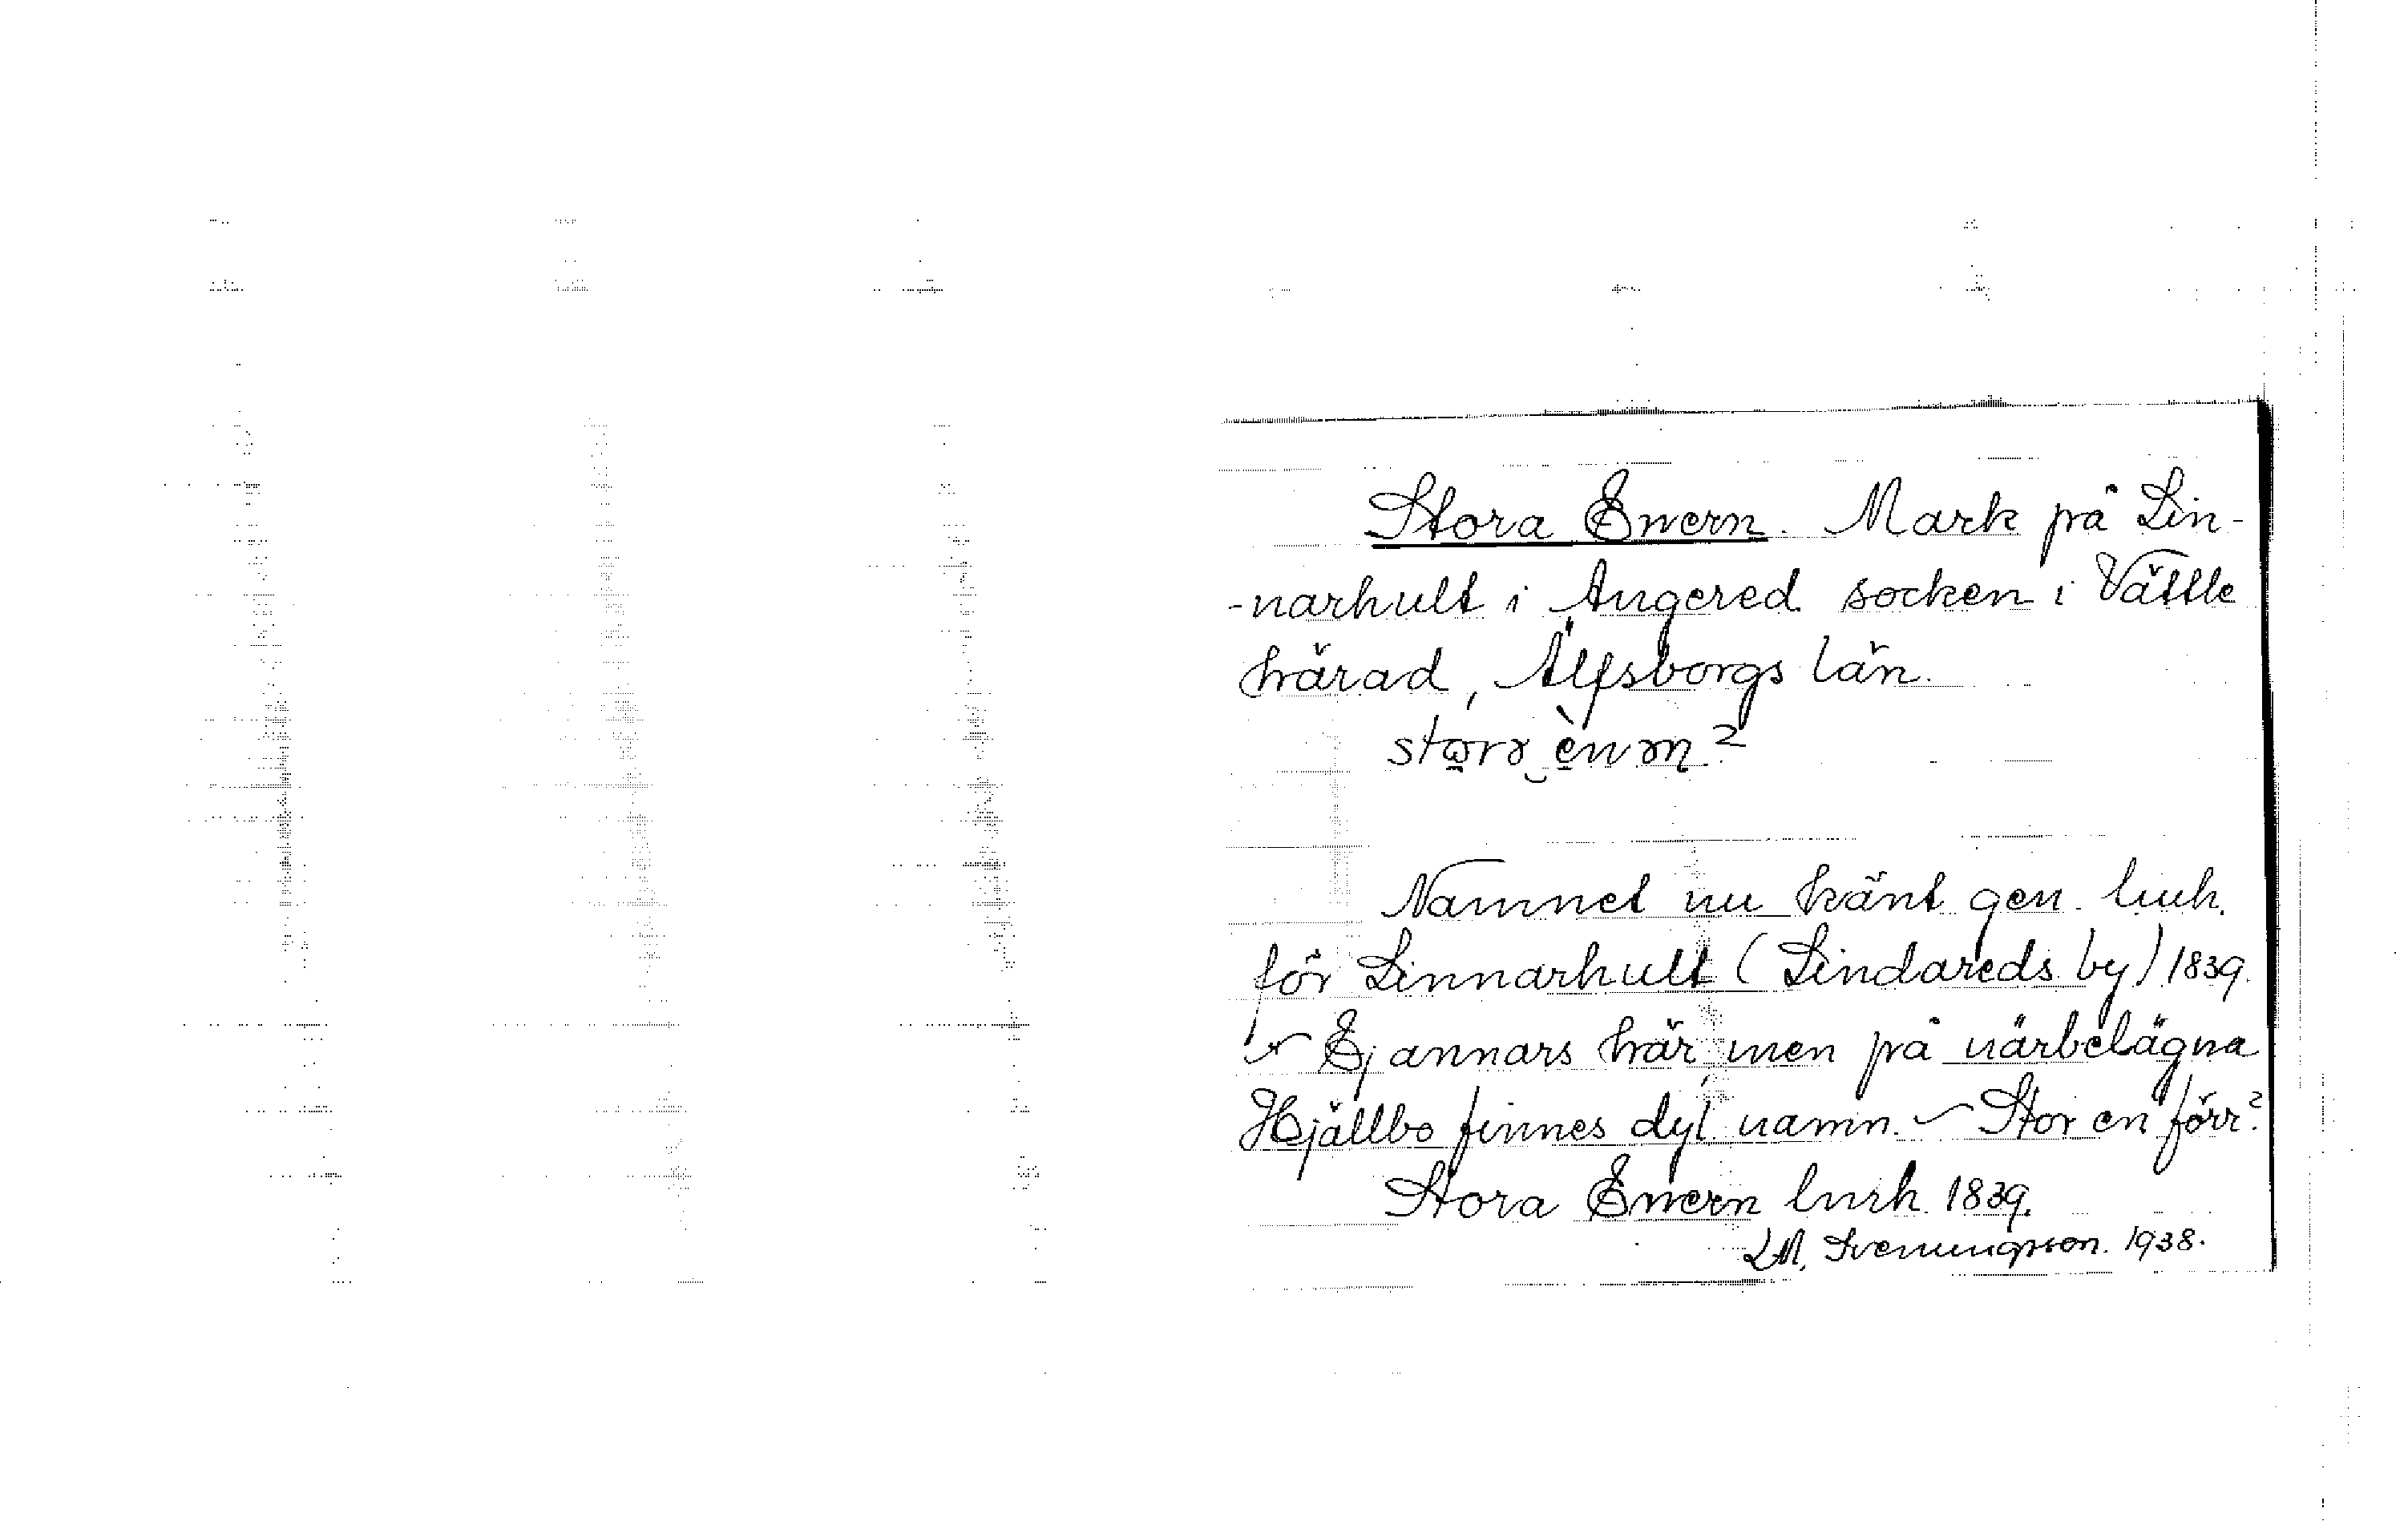 Stora Enern. Mark på Lin-
-narhult i Angered socken i Vättle
härad, Älfsborgs län.
Namnet nu känt gen. lmh.
för Linnarhult (Lindareds by) 1839.
~ Ej annars här men på närbelägna
Hjällbo finnes dyl. namn. ~ Stor en förr?
Stora Enern lmh. 1839.
LM. Svenungsson. 1938.